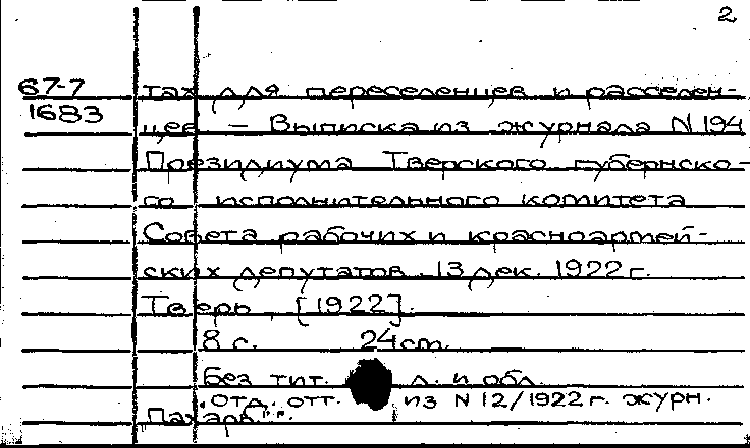 2
67-7
1683
тах для переселенцев и расселен-
цев — Выписка из журнала N 194
Президиума Тверского губернско-
го исполнительного комитета
Совета рабочих и красноармей-
ских депутатов 13 дек. 1922 г.
Тверь, [1922].
8 с. 24 см.
Без тит. л. и обл.
Отд. отт. из N 12/1922 г. журн.
"Пахарь".